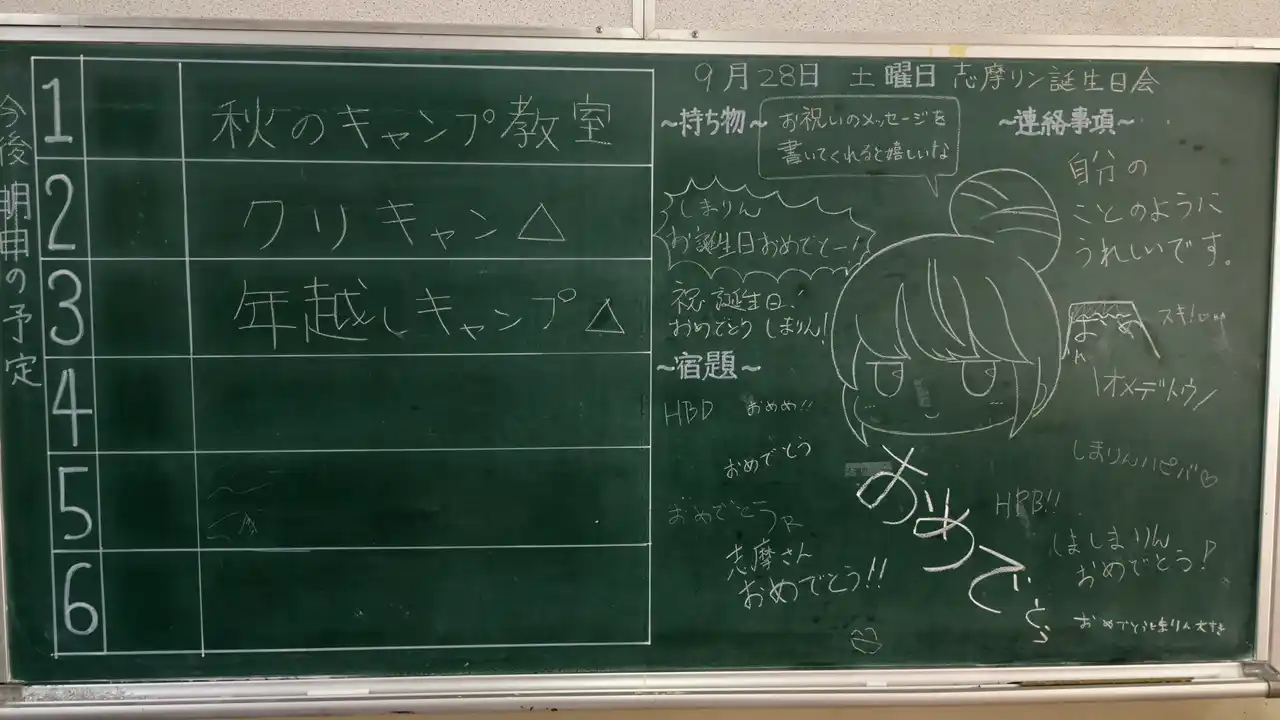 今後の予定
明日
1 秋のキャンプ教室
2 クリキャン△
3 年越しキャンプ△
4
5
6
9月28日 土曜日 志摩リン誕生日会
～持ち物～
お祝いのメッセージを
書いてくれると嬉しいな
しまりん
お誕生日おめでとー!
祝 誕生日!
おめでとう しまりん!
～宿題～
HBD おめめ!!
おめでとう
おめでとう
志摩さん
おめでとう!!
おめでとう
～連絡事項～
自分の
ことのように
うれしいです。
スキ!
\オメデトウ/
しまりんハピバ♡
HPB!!
しましまりん
おめでとう!
おめでとうしまりん大すき